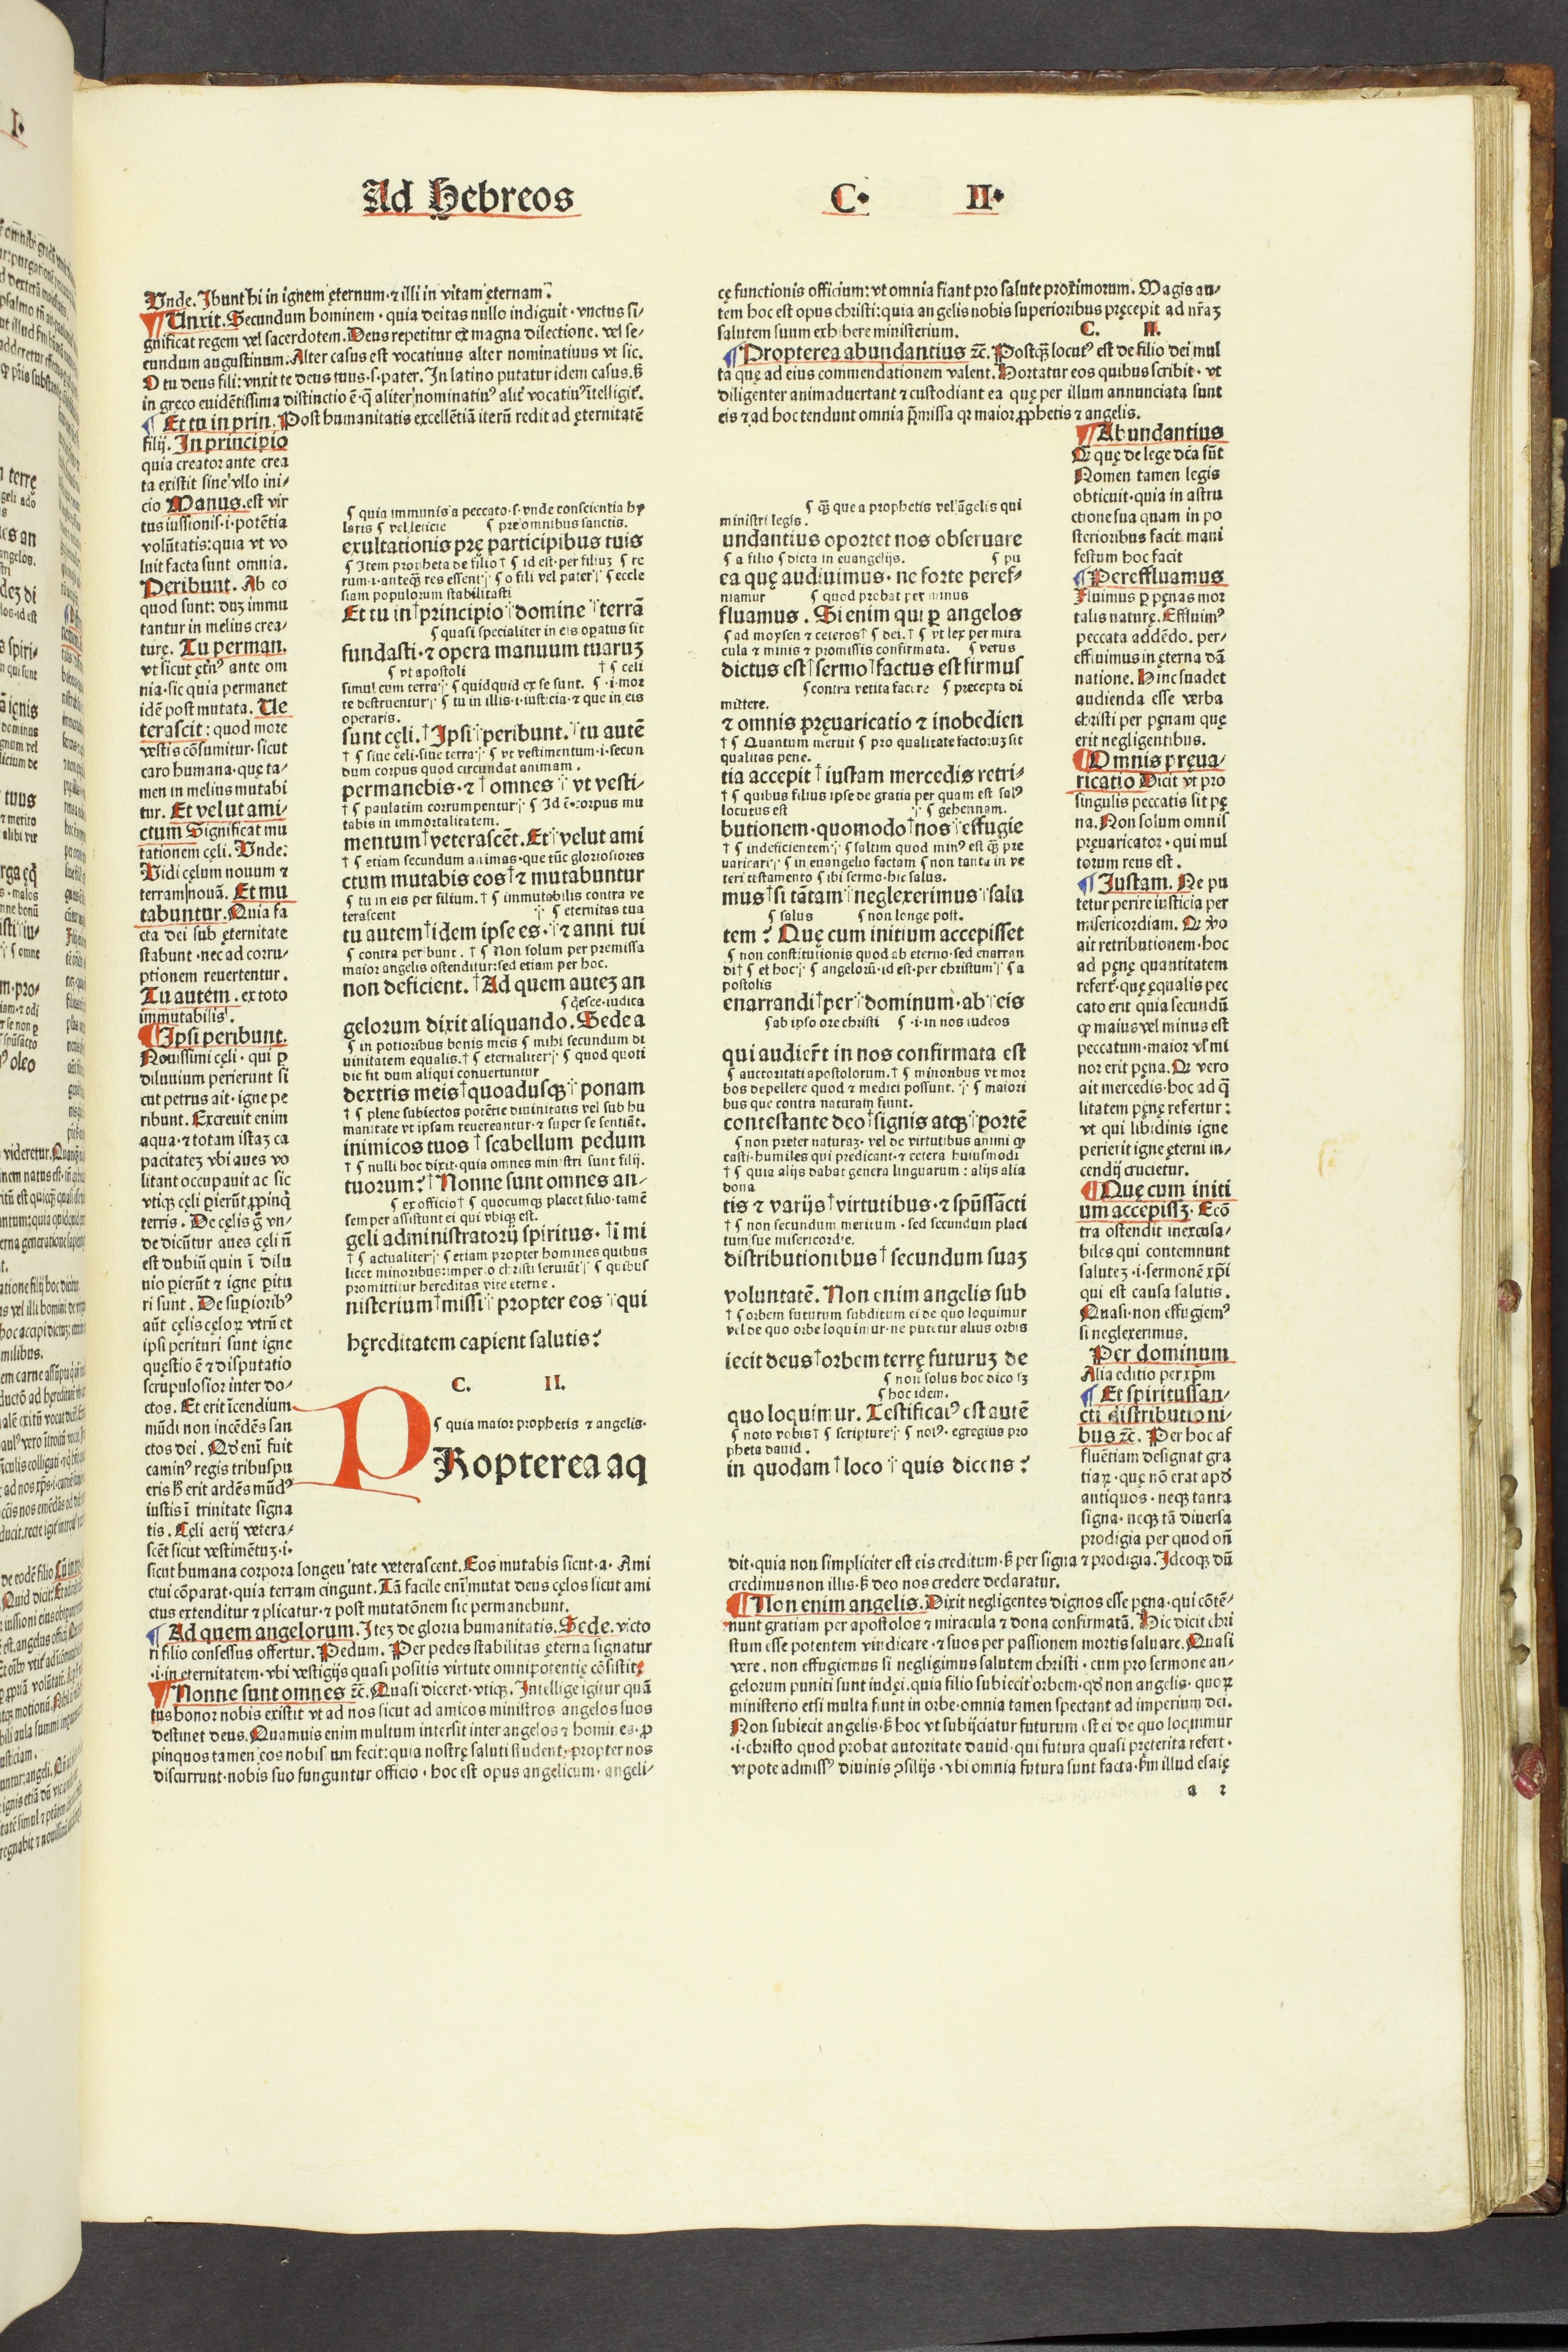 Ad Hebreos C. II.
Vnde. Ibunt hi in ignem ęternum ⁊ illi in vitam ęternam.
Unxit. Secundum hominem · quia deitas nullo indiguit · vnctus si⸗
gnificat regem vel sacerdotem. Deus repetitur ex magna dilectione. vel se⸗
cundum augustinum. Alter casus est vocatiuus alter nominatiuus vt sic.
O tu deus fili: vnxit te deus tuus · s · pater. In latino putatur idem casus. ß
in greco euidētissima distinctio ē · q̄ aliter nominatiuꝰ alit̛ vocatiuꝰ ītelligit̛.
Et tu in prin. Post humanitatis excellētiā iterū redit ad ęternitatē
filij. In principio
quia creator ante crea
ta existit sine vllo ini⸗
cio Manus. est vir
tus iussionis · i · potētia
volūtatis: quia vt vo
luit facta sunt omnia.
Peribunt. Ab eo
quod sunt: duʒ immu
tantur in melius crea⸗
turę. Tu perman.
vt sicut ęt̛nꝰ ante om
nia · sic quia permanet
idē post mutata. Ue
terascit: quod more
vestis cōsumitur · sicut
caro humana · quę ta⸗
men in melius mutabi
tur. Et velut ami⸗
ctum Significat mu
tationem cęli. Vnde:
Vidi cęlum nouum ⁊
terram nouā. Et mu
tabuntur. Quia fa
cta dei sub ęternitate
stabunt · nec ad corru⸗
ptionem reuertentur.
Tu autem. ex toto
immutabilis.
Ipsi peribunt.
Nouissimi cęli · qui ꝑ
diluuium perierunt si
cut petrus ait · igne pe
ribunt. Excreuit enim
aqua · ⁊ totam istaʒ ca
pacitateʒ vbi aues vo
litant occupauit ac sic
vtiqʒ cęli pierūt ꝓpinqʒ
terris. De cęlis ḡ vn⸗
de dicūtur aues cęli ñ
est dubiū quin ī dilu
uio pierūt ⁊ igne pitu
ri sunt. De supioribꝰ
aūt cęlis cęloꝝ vtrū et
ipsi perituri sunt igne
quęstio ē ⁊ disputatio
scrupulosior inter do⸗
ctos. Et erit īcendium
mūdi non incēdēs san
ctos dei. Qđ enī fuit
caminꝰ regis tribus pu
eris ß erit ardēs mūdꝰ
iustis ī trinitate signa
tis. Cęli aerij vetera⸗
scēt sicut vestimētuʒ · i ·
sicut humana corpora longeuitate veterascent. Eos mutabis sicut · a · Ami
ctui cōparat · quia terram cingunt. Tā facile enī mutat deus cęlos sicut ami
ctus extenditur ⁊ plicatur · ⁊ post mutatōnem sic permanebunt.
Ad quem angelorum. Iteʒ de gloria humanitatis. Sede. victo
ri filio consessus offertur. Pedum. Per pedes stabilitas ęterna signatur
· i · in ęternitatem · vbi vestigijs quasi positis virtute omnipotentię cōsistit.
Nonne sunt omnes ⁊c̄. Quasi diceret · vtiqʒ. Intellige igitur quā
tus honor nobis existit vt ad nos sicut ad amicos ministros angelos suos
destinet deus. Quamuis enim multum intersit inter angelos ⁊ homines · ꝓ
pinquos tamen eos nobis cum fecit: quia nostrę saluti student, propter nos
discurrunt · nobis suo funguntur officio · hoc est opus angelicum · angeli⸗
quia immunis a peccato · s · vnde conscientia hy
laris vel leticie pre omnibus sanctis.
exultationis prę participibus tuis
Item propheta de filio † id est · per filiuʒ re
rum · i · anteqʒ res essent o fili vel pater eccle
siam populorum stabilitasti
Et tu in † principio domine terrā
quasi specialiter in eis opatus sit
fundasti · ⁊ opera manuum tuaruʒ
vt apostoli † celi
simul cum terra quidquid ex se sunt. · i · mor
te destruentur tu in illis · i · iusticia · ⁊ que in eis
operaris.
sunt cęli. † Ipsi peribunt. tu autē
† siue celi · siue terra vt vestimentum · i · secun
dum corpus quod circundat animam.
permanebis · ⁊ † omnes vt vesti⸗
† paulatim corrumpentur Id ē · corpus mu
tabis in immortalitatem.
mentum † veterascēt. Et velut ami
† etiam secundum animas · que tūc gloriosiores
ctum mutabis eos † ⁊ mutabuntur
tu in eis per filium. † immutabilis contra ve
terascent eternitas tua
tu autem † idem ipse es · ⁊ anni tui
contra peribunt. † Non solum per premissa
maior angelis ostenditur: sed etiam per hoc.
non deficient. † Ad quem auteʒ an
q̄esce · iudica
gelorum dixit aliquando. Sede a
in potioribus bonis meis mihi secundum di
uinitatem equalis. † eternaliter quod quoti
die fit dum aliqui conuertuntur
dextris meis † quoadusqʒ ponam
† plene subiectos potētie diuinitatis vel sub hu
manitate vt ipsam reuereantur · ⁊ super se sentiāt.
inimicos tuos † scabellum pedum
† nulli hoc dixit · quia omnes ministri sunt filij.
tuorum? † Nonne sunt omnes an⸗
ex officio † quocumqʒ placet filio · tamē
semper assistunt ei qui vbiqʒ est.
geli administratorij spiritus · † i mi
† actualiter etiam propter homines quibus
licet minoribus: imperio christi seruiūt quibus
promittitur hereditas vite eterne.
nisterium † missi propter eos qui
hęreditatem capient salutis?
C. II.
quia maior prophetis ⁊ angelis.
PRopterea aq
cę functionis officium: vt omnia fiant pro salute proximorum. Magis au⸗
tem hoc est opus christi: quia angelis nobis superioribus pręcepit ad nr̄aʒ
salutem suum exhibere ministerium. C. II.
Propterea abundantius ⁊c̄. Postqʒ̄ locutꝰ est de filio dei mul
ta quę ad eius commendationem valent. Hortatur eos quibus scribit · vt
diligenter animaduertant ⁊ custodiant ea quę per illum annunciata sunt
eis ⁊ ad hoc tendunt omnia p̄missa qꝛ maior ꝓphetis ⁊ angelis.
q̄ʒ que a prophetis vel āgelis qui
ministri legis.
undantius oportet nos obseruare
a filio dicta in euangelijs. pu
ea quę audiuimus · ne forte peref⸗
niamur quod probat per minus
fluamus. Si enim qui ꝑ angelos
ad moysen ⁊ ceteros † dei. † vt lex per mira
cula ⁊ minis ⁊ promissis confirmata. verus
dictus est † sermo † factus est firmus
contra vetita facere precepta di
mittere.
⁊ omnis pręuaricatio ⁊ inobedien
† Quantum meruit pro qualitate factoruʒ sit
qualitas pene.
tia accepit † iustam mercedis retri⸗
† quibus filius ipse de gratia per quam est salꝰ
locutus est gehennam.
butionem · quomodo † nos effugie
† indeficientem saltim quod minꝰ est qʒ̄ pre
uaricari in euangelio factam non tanta in ve
teri testamento ibi sermo · hic salus.
mus † si tātam neglexerimus salu
salus non longe post.
tem? Quę cum initium accepisset
non constitutionis quod ab eterno · sed enarran
di † et hoc angelorū · id est · per christum a
postolis
enarrandi † per dominum · ab eis
ab ipso ore christi · i · in nos iudeos
qui audier̄t in nos confirmata est
auctoritati apostolorum. † minoribus vt mor
bos depellere quod ⁊ medici possunt. maiori
bus que contra naturam fiunt.
contestante deo † signis atqʒ portē
non preter naturaʒ · vel de virtutibus animi qꝫ
casti · humiles qui predicant · ⁊ cetera huiusmodi
† quia alijs dabat genera linguarum: alijs alia
dona
tis ⁊ varijs † virtutibus · ⁊ spūssācti
† non secundum meritum · sed secundum placi
tum sue misericordie.
distributionibus † secundum suaʒ
voluntatē. Non enim angelis sub
† orbem futurum subditum ei de quo loquimur
vel de quo orbe loquimur · ne putetur alius orbis
iecit deus † orbem terrę futuruʒ de
non solus hoc dico sʒ
hoc idem.
quo loquimur. Testificatꝰ est autē
noto vobis † scripture nolꝰ · egregius pro
pheta dauid.
in quodam † loco quis dicens?
Abundantius
Qꝛ quę de lege dc̄a sūt
Nomen tamen legis
obticuit · quia in astru
ctione sua quam in po
sterioribus facit mani
festum hoc facit
Pereffluamus
Fluimus ꝑ pęnas mor
talis naturę. Effluimꝰ
peccata addēdo. per⸗
effluimus in ęterna dā
natione. Hinc suadet
audienda esse verba
christi per pęnam quę
erit negligentibus.
Omnis pręua⸗
ricatio Dicit vt pro
singulis peccatis sit pę
na. Non solum omnis
pręuaricator · qui mul
torum reus est.
Iustam. Ne pu
tetur perire iusticia per
misericordiam. Qꝛ v̊o
ait retributionem · hoc
ad pęnę quantitatem
refert · quę ęqualis pec
cato erit quia secundū
qꝫ maius vel minus est
peccatum · maior vl̛ mi
nor erit pęna. Qꝛ vero
ait mercedis · hoc ad q̄
litatem pęnę refertur:
vt qui libidinis igne
perierit igne ęterni in⸗
cendij crucietur.
Quę cum initi
um accepissʒ. Ecō
tra ostendit inexcusa⸗
biles qui contemnunt
saluteʒ · i · sermonē xp̄i
qui est causa salutis.
Quasi · non effugiemꝰ
si neglexerimus.
Per dominum
Alia editio per xp̄m
Et spiritussan⸗
cti distributioni⸗
bus ⁊c̄. Per hoc af
fluētiam designat gra
tiaꝝ · quę nō erat apđ
antiquos · neqʒ tanta
signa · neqʒ tā diuersa
prodigia per quod oñ
dit · quia non simpliciter est eis creditum · ß per signa ⁊ prodigia. Ideoqʒ dū
credimus non illis · ß deo nos credere declaratur.
Non enim angelis. Dixit negligentes dignos esse pęna · qui cōtē⸗
nunt gratiam per apostolos ⁊ miracula ⁊ dona confirmatā. Hic dicit chri
stum esse potentem vindicare · ⁊ suos per passionem mortis saluare. Quasi
vere. non effugiemus si negligimus salutem christi · cum pro sermone an⸗
gelorum puniti sunt iudęi. quia filio subiecit orbem · qđ non angelis · quoꝝ
ministerio etsi multa fiunt in orbe · omnia tamen spectant ad imperium dei.
Non subiecit angelis · ß hoc vt subijciatur futurum est ei de quo loquimur
· i · christo quod probat autoritate dauid · qui futura quasi pręterita refert ·
vtpote admissꝰ diuinis ꝯsilijs · vbi omnia futura sunt facta · ẜm illud esaię
a 2